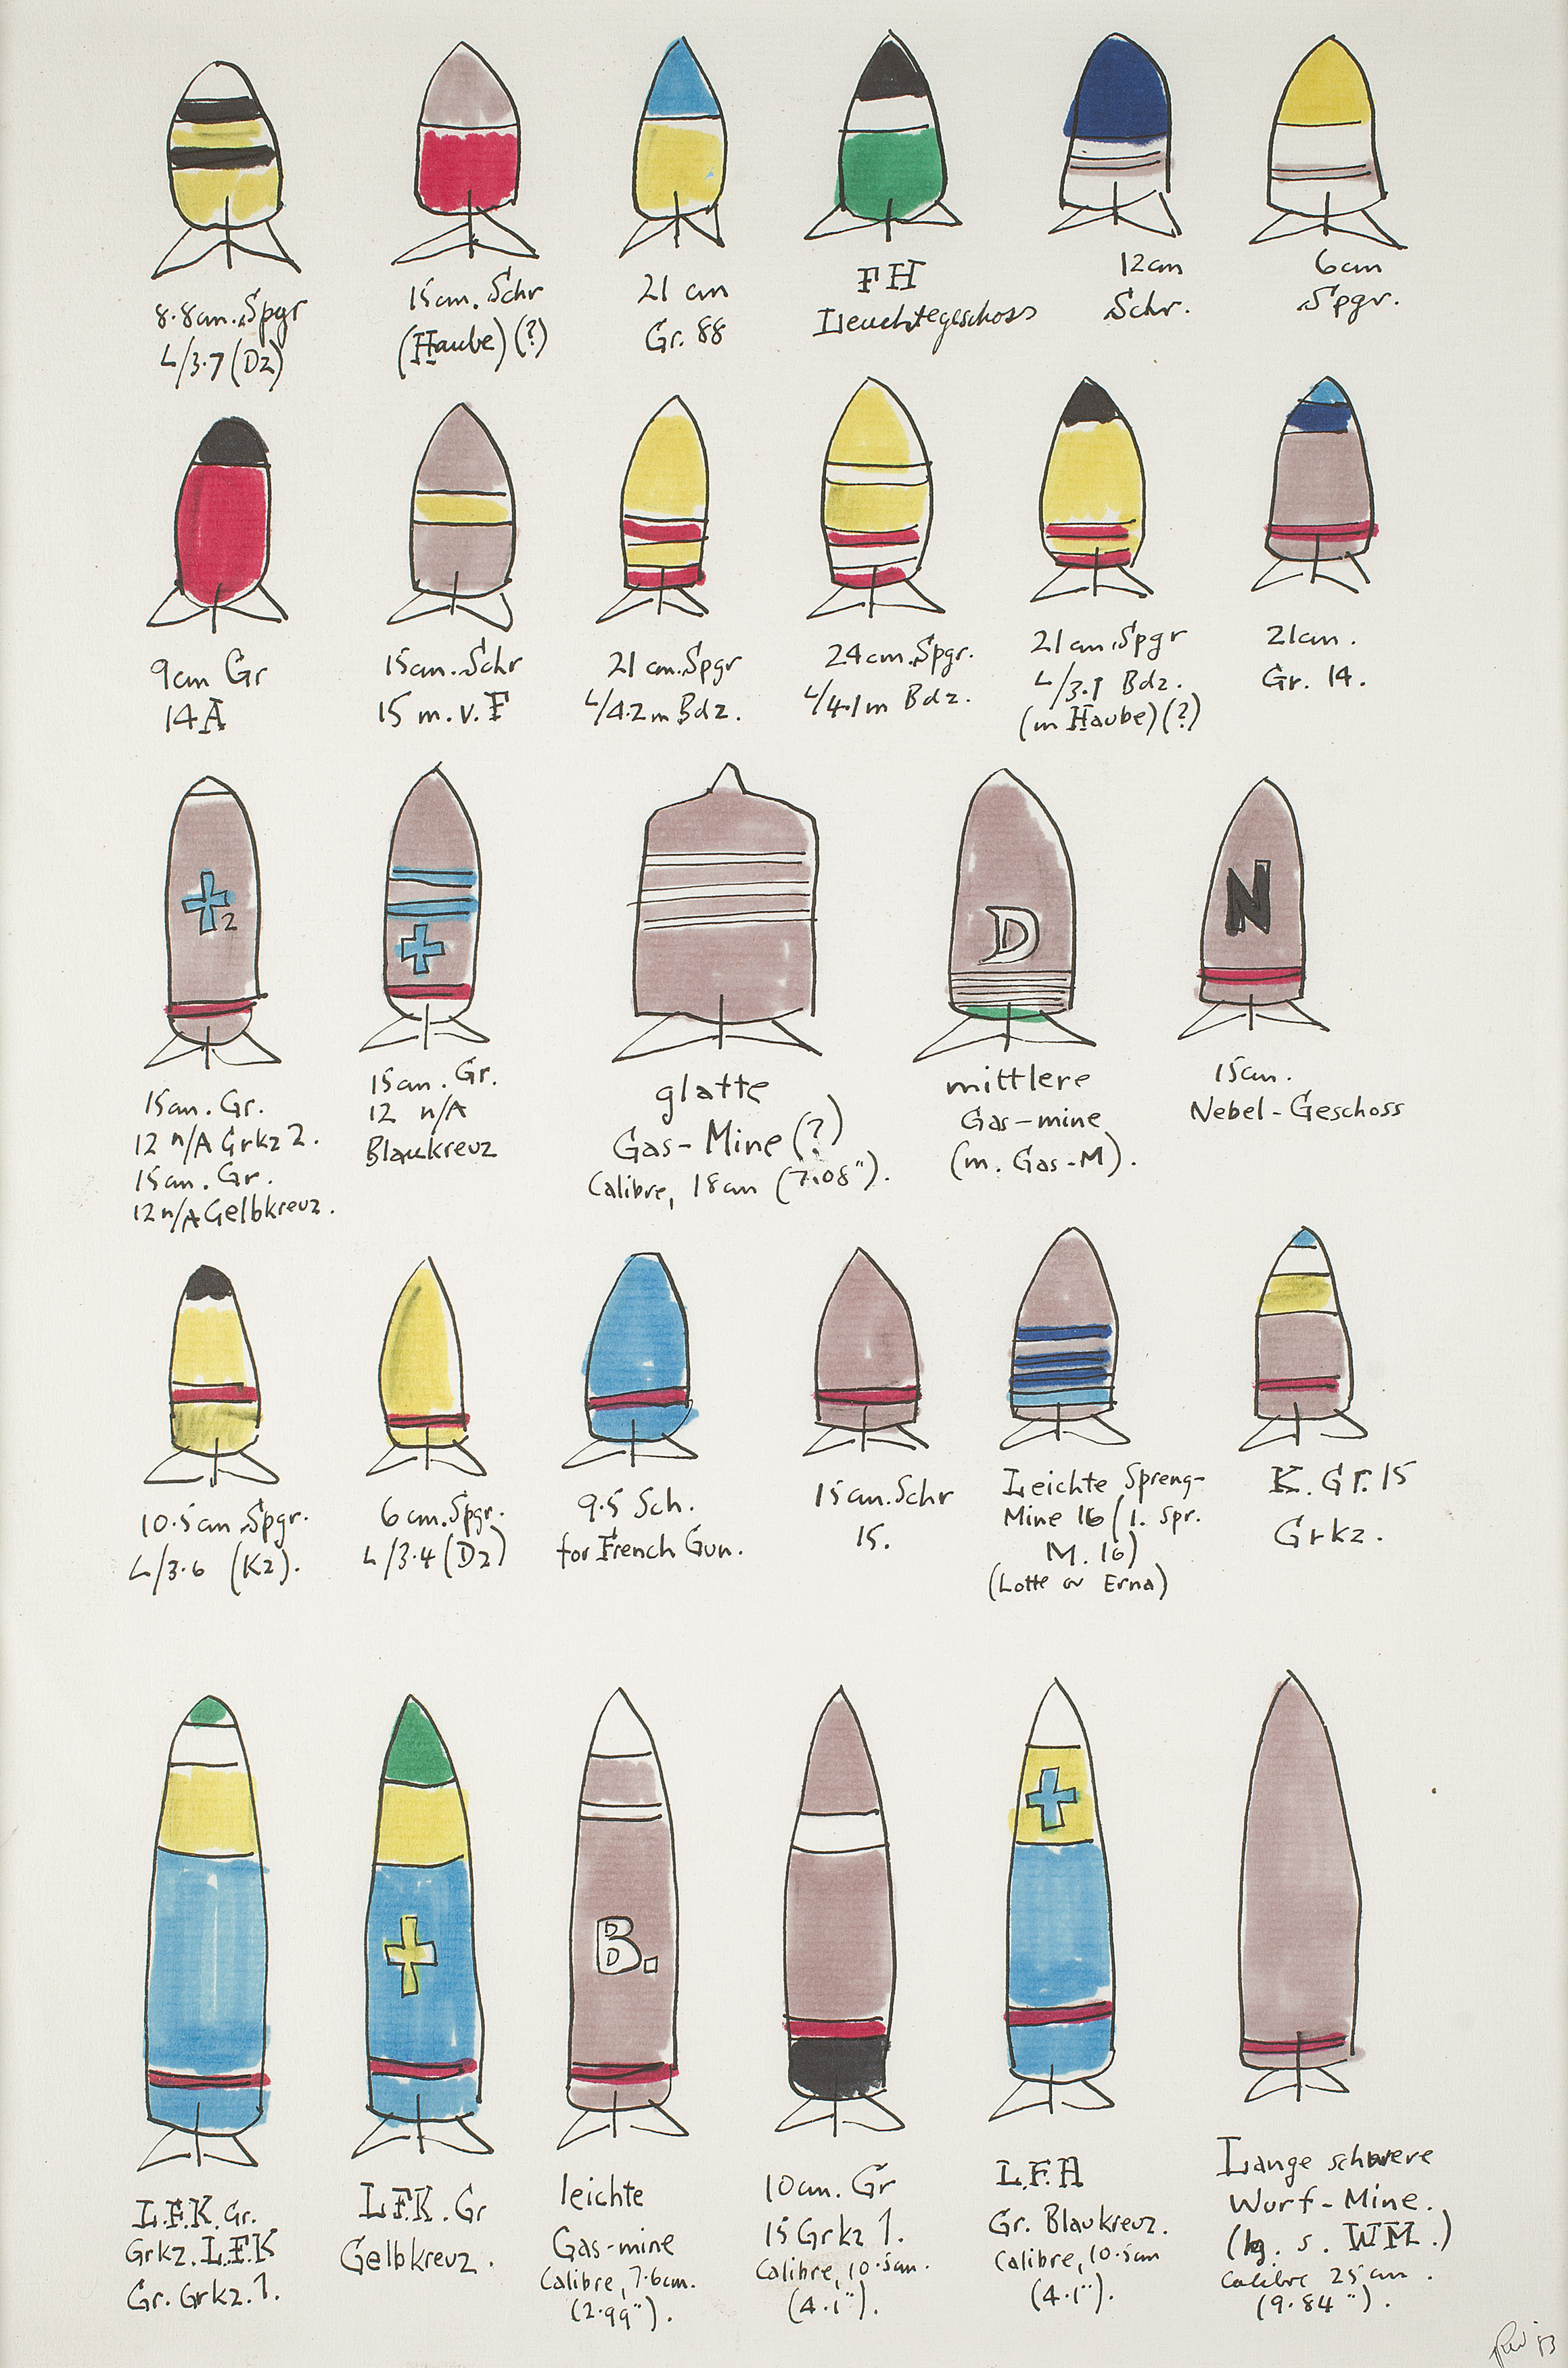 8.8cm. Spgr
L/3.7 (Dz)
15cm. Schr
(Haube) (?)
21 cm
Gr. 88
FH
Leuchtegeschoss
12cm
Schr.
6cm
Spgr.
9cm Gr
14A
15cm. Schr
15 m. v. F
21 cm. Spgr
L/4.2 m Bdz.
24cm. Spgr.
L/4.1 m Bdz.
21cm. Spgr
L/3.1 Bdz.
(m Haube) (?)
21cm.
Gr. 14.
2
D
N
15cm. Gr.
12 n/A Grkz 2.
15cm. Gr.
12 n/A Gelbkreuz.
15cm. Gr.
12 n/A
Blaukreuz
glatte
Gas-Mine (?)
Calibre, 18cm (7.08").
mittlere
Gas-mine
(m. Gas-M).
15cm.
Nebel-Geschoss
10.5cm Spgr.
L/3.6 (Kz).
6cm. Spgr.
L/3.4 (Dz)
9.5 Sch.
for French Gun.
15cm. Schr
15.
Leichte Spreng-
Mine 16 (l. Spr.
M. 16)
(Lotte or Erna)
K. Gr. 15
Grkz.
B.
L.F.K. Gr.
Grkz. L.F.K
Gr. Grkz. 1.
L.F.K. Gr
Gelbkreuz.
leichte
Gas-mine
Calibre, 7.6cm.
(2.99").
10cm. Gr
15 Grkz 1.
Calibre, 10.5cm.
(4.1").
L.F.H
Gr. Blaukreuz.
Calibre, 10.5cm
(4.1").
Lange schwere
Wurf-Mine.
(lg. s. WM.)
Calibre 25cm.
(9.84").